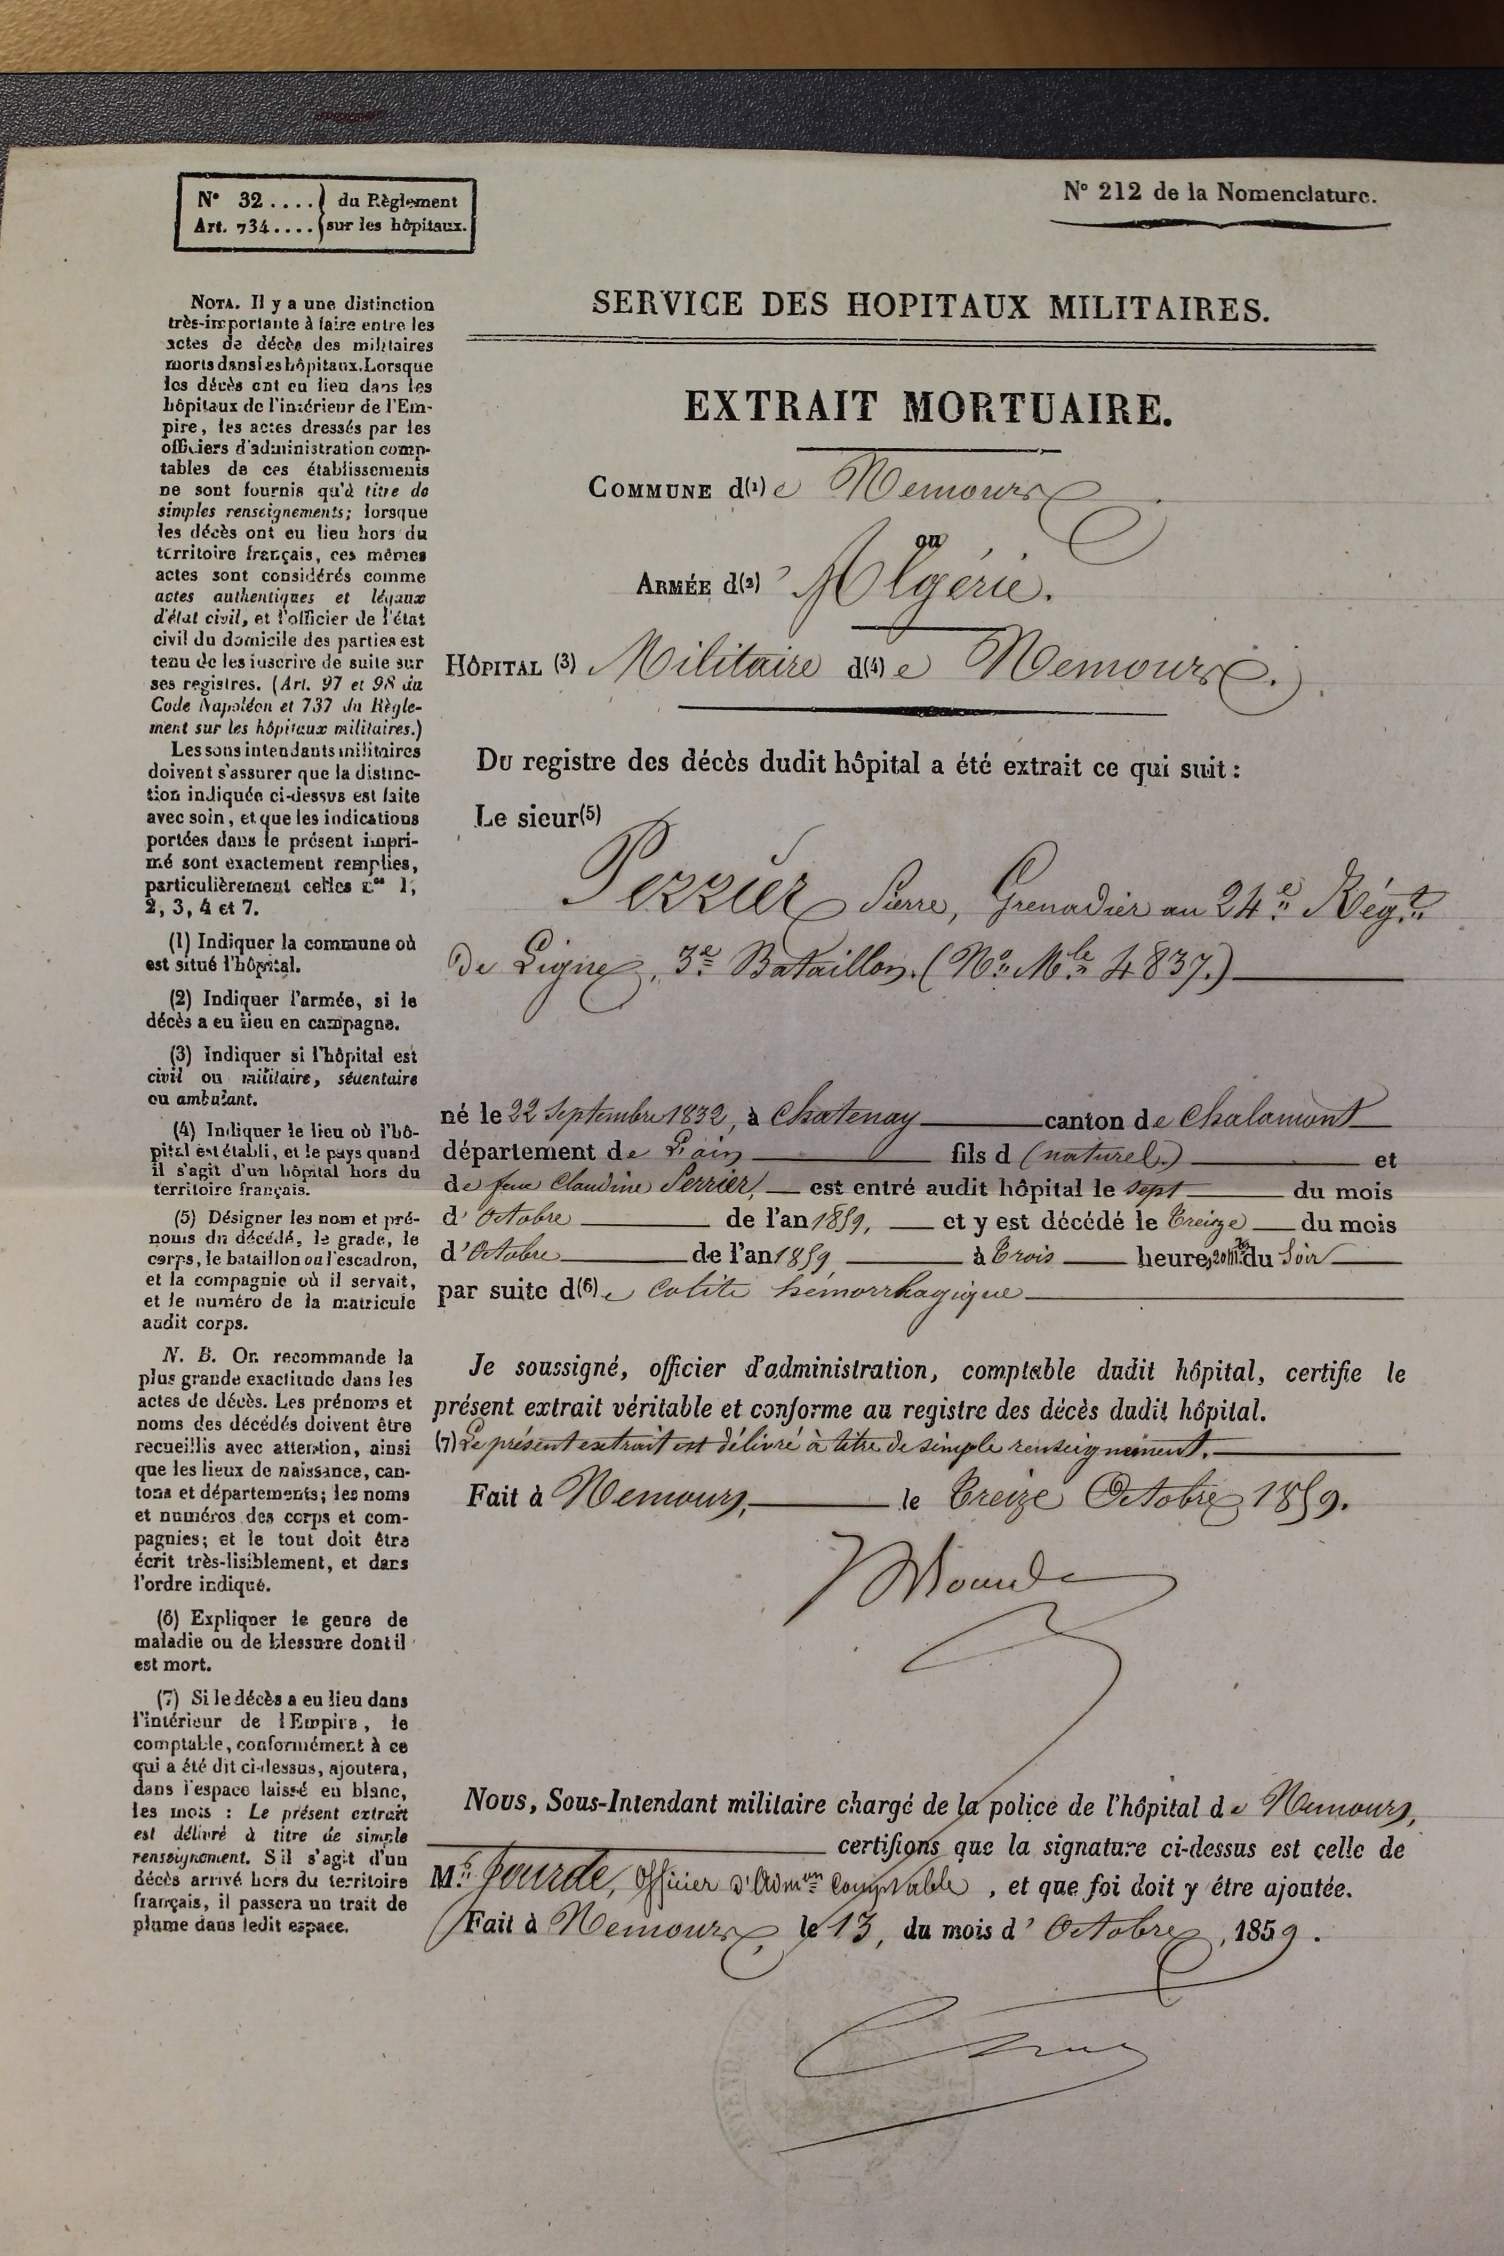 N° 32 .... } du Règlement
Art. 734 .... } sur les hôpitaux.
N° 212 de la Nomenclature.
NOTA. Il y a une distinction
très-importante à faire entre les
actes de décès des militaires
morts dans les hôpitaux. Lorsque
les décès ont eu lieu dans les
hôpitaux de l'intérieur de l'Em-
pire, les actes dressés par les
officiers d'administration comp-
tables de ces établissements
ne sont fournis qu'à titre de
simples renseignements; lorsque
les décès ont eu lieu hors du
territoire français, ces mêmes
actes sont considérés comme
actes authentiques et légaux
d'état civil, et l'officier de l'état
civil du domicile des parties est
tenu de les inscrire de suite sur
ses registres. (Art. 97 et 98 du
Code Napoléon et 737 du Règle-
ment sur les hôpitaux militaires.)
Les sous intendants militaires
doivent s'assurer que la distinc-
tion indiquée ci-dessus est faite
avec soin, et que les indications
portées dans le présent impri-
mé sont exactement remplies,
particulièrement celles nos 1,
2, 3, 4 et 7.
(1) Indiquer la commune où
est situé l'hôpital.
(2) Indiquer l'armée, si le
décès a eu lieu en campagne.
(3) Indiquer si l'hôpital est
civil ou militaire, sédentaire
ou ambulant.
(4) Indiquer le lieu où l'hô-
pital est établi, et le pays quand
il s'agit d'un hôpital hors du
territoire français.
(5) Désigner les nom et pré-
noms du décédé, le grade, le
corps, le bataillon ou l'escadron,
et la compagnie où il servait,
et le numéro de la matricule
audit corps.
N. B. On recommande la
plus grande exactitude dans les
actes de décès. Les prénoms et
noms des décédés doivent être
recueillis avec attention, ainsi
que les lieux de naissance, can-
tons et départements; les noms
et numéros des corps et com-
pagnies; et le tout doit être
écrit très-lisiblement, et dans
l'ordre indiqué.
(6) Expliquer le genre de
maladie ou de blessure dont il
est mort.
(7) Si le décès a eu lieu dans
l'intérieur de l'Empire, le
comptable, conformément à ce
qui a été dit ci-dessus, ajoutera,
dans l'espace laissé en blanc,
les mots : Le présent extrait
est délivré à titre de simple
renseignement. S'il s'agit d'un
décès arrivé hors du territoire
français, il passera un trait de
plume dans ledit espace.
SERVICE DES HOPITAUX MILITAIRES.
EXTRAIT MORTUAIRE.
COMMUNE d(1)e Nemours
ou
ARMÉE d(2)' Algérie.
HÔPITAL (3) Militaire d(4)e Nemours.
Du registre des décès dudit hôpital a été extrait ce qui suit :
Le sieur(5)
Perrier Pierre, Grenadier au 24e Régt
de Ligne, 3e Bataillon. (No Mle 4837.)
né le 22 Septembre 1832, à Chatenay canton de Chalamont
département de L'ain fils d (naturel.) et
de feue Claudine Perrier, est entré audit hôpital le sept du mois
d'Octobre de l'an 1859, et y est décédé le Treize du mois
d'Octobre de l'an 1859 à Trois heures 20 m. du Soir
par suite d(6)e Colite hémorrhagique
Je soussigné, officier d'administration, comptable dudit hôpital, certifie le
présent extrait véritable et conforme au registre des décès dudit hôpital.
(7) Le présent extrait est délivré à titre de simple renseignement.
Fait à Nemours, le Treize Octobre 1859.
Nous, Sous-Intendant militaire chargé de la police de l'hôpital de Nemours,
certifions que la signature ci-dessus est celle de
Mr Jourde, officier d'Admon comptable, et que foi doit y être ajoutée.
Fait à Nemours, le 13, du mois d'Octobre, 1859.